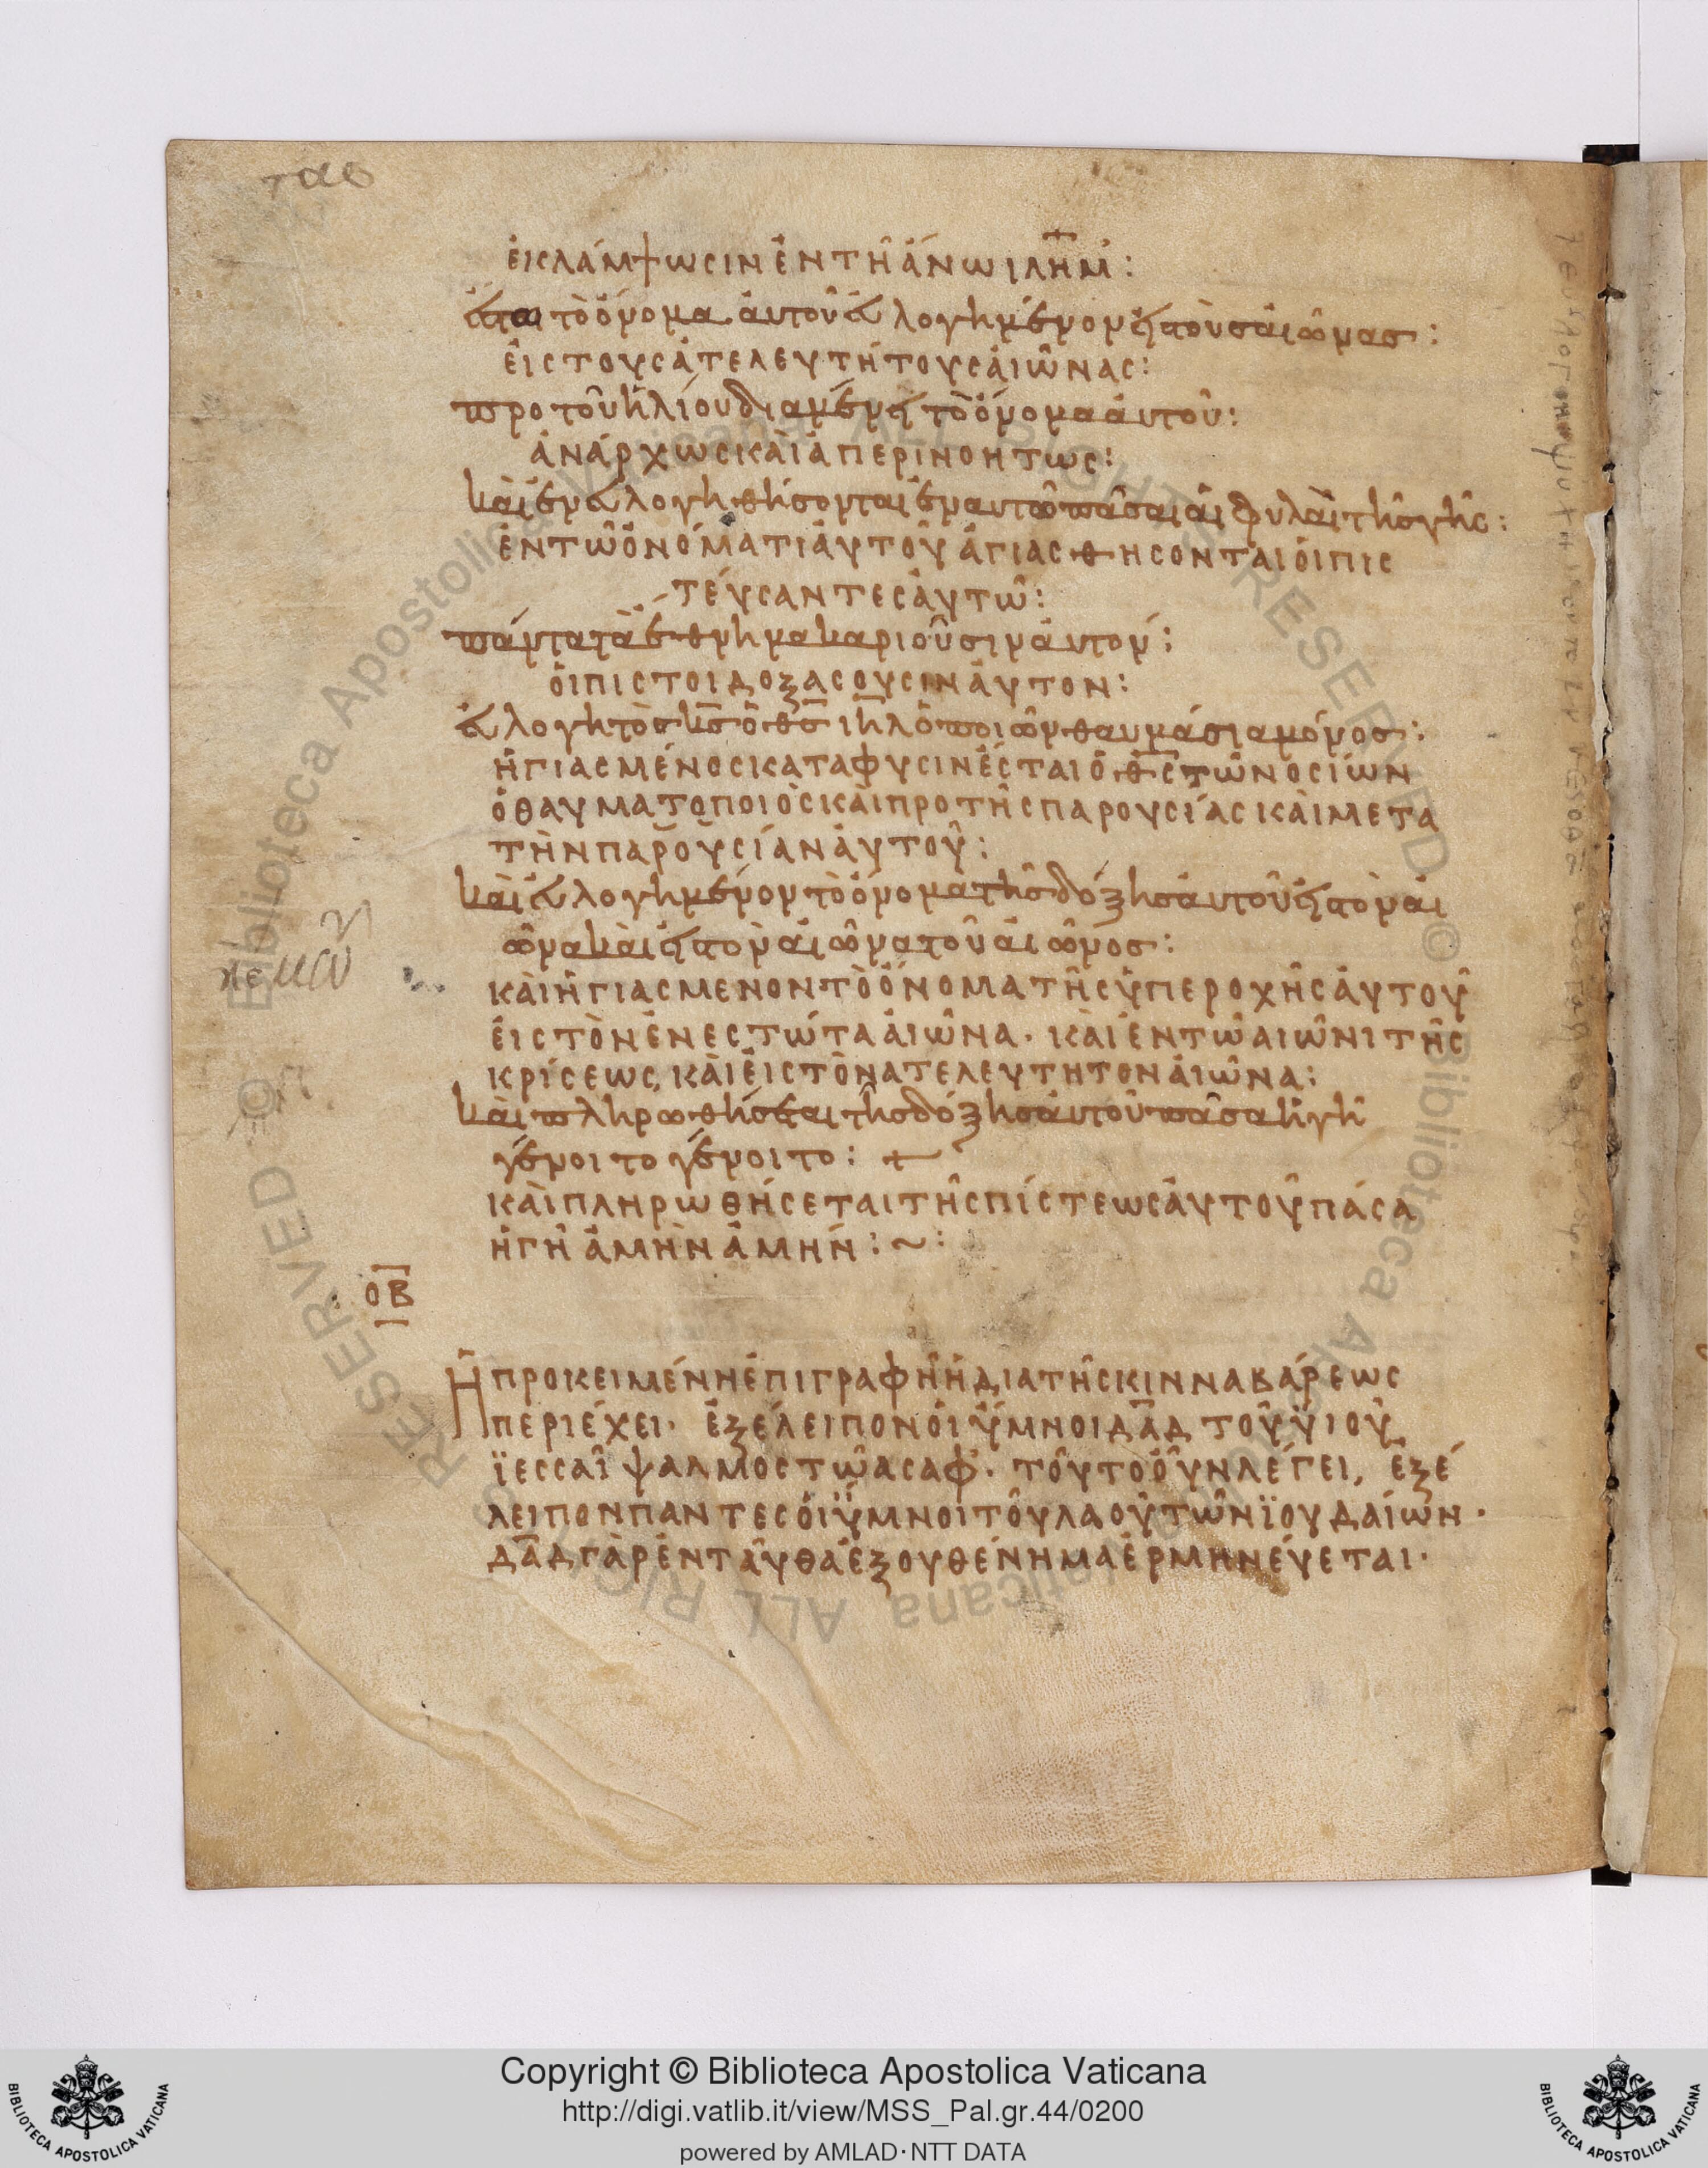 ἐκλάμψωσιν ἐν τῇ ἄνω ιλῆμ:
ἔσται τὸ ὄνομα αὐτοῦ εὐλογημένον εἰς τοὺς αἰῶνας:
εἰς τοὺς ἀτελευτήτους αἰῶνας:
πρὸ τοῦ ἡλίου διαμένει τὸ ὄνομα αὐτοῦ:
ἀνάρχως καὶ ἀπερινοήτως:
καὶ ἐνευλογηθήσονται ἐν αὐτῷ πᾶσαι αἱ φυλαὶ τῆς γῆς:
ἐν τῷ ὀνόματι αὐτοῦ ἁγιασθήσονται οἱ πισ
τεύσαντες αὐτῷ:
πάντα τὰ ἔθνη μακαριοῦσιν αὐτόν:
οἱ πιστοὶ δοξάσουσιν αὐτόν:
εὐλογητὸς κς ὁ θς ιηλ ὁ ποιῶν θαυμάσια μόνος:
ἡγιασμένος κατὰ φύσιν ἐσται ὁ θς τῶν ὁσίων
ὁ θαυματοποιὸς καὶ πρὸ τῆς παρουσίας καὶ μετὰ
τὴν παρουσίαν αὐτοῦ:
καὶ εὐλογημένον τὸ ὄνομα τῆς δόξης αὐτοῦ εἰς τὸν αἰ
ῶνα καὶ εἰς τὸν αἰῶνα τοῦ αἰῶνος:
καὶ ἡγιασμένον τὸ ὄνομα τῆς ὑπεροχῆς αὐτοῦ
εἰς τὸν ἐνεστῶτα αἰῶνα· καὶ ἐν τῷ αἰῶνι τῆς
κρίσεως, καὶ εἰς τὸν ἀτελεύτητον αἰῶνα:
καὶ πληρωθήσεται τῆς δόξης αὐτοῦ πᾶσα ἡ γῆ
γένοιτο γένοιτο: +
καὶ πληρωθήσεται τῆς πίστεως αὐτοῦ πάσα
ἡ γῆ ἀμὴν ἀμήν: ~:
ΟΒ
Ἡ προκειμένη ἐπιγραφὴ ἡ διὰ τῆς κινναβάρεως
περιέχει· ἐξέλειπον οἱ ὕμνοι δαδ τοῦ υἱοῦ
ϊεσσαὶ ψαλμὸς τῷ ασαφ· τοῦτο οὖν λέγει, ἐξέ
λειπον πάντες οἱ ὕμνοι τοῦ λαοῦ τῶν ϊουδαίων·
δαδ γὰρ ἐνταῦθα ἐξουθένημα ἑρμηνεύεται·
Copyright © Biblioteca Apostolica Vaticana
http://digi.vatlib.it/view/MSS_Pal.gr.44/0200
powered by AMLAD·NTT DATA
BIBLIOTECA APOSTOLICA VATICANA
BIBLIOTECA APOSTOLICA VATICANA